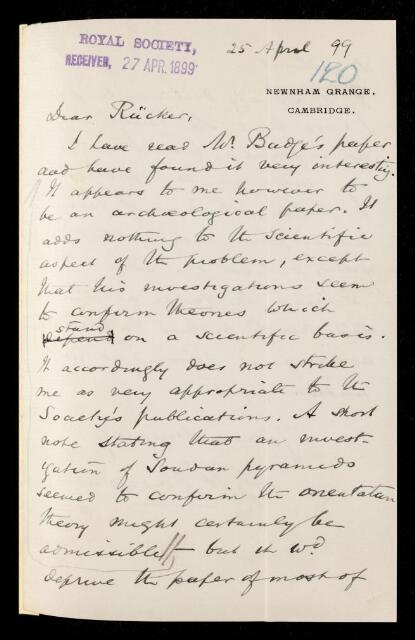 ROYAL SOCIETY,
RECEIVED, 27 APR. 1899
25 April 99
120
NEWNHAM GRANGE.
CAMBRIDGE.
Dear Rücker,
I have read Mr. Budge's paper
and have found it very interesting.
It appears to me however to
be an archæological paper. It
adds nothing to the scientific
aspect of the problem, except
that his investigations seem
to confirm theories which
stand
depend on a scientific basis.
It accordingly does not strike
me as very appropriate to the
Society's publications. A short
note stating that an invest-
igation of Soudan pyramids
seemed to confirm the orientation
theory might certainly be
admissible — but it wd
deprive the paper of most of